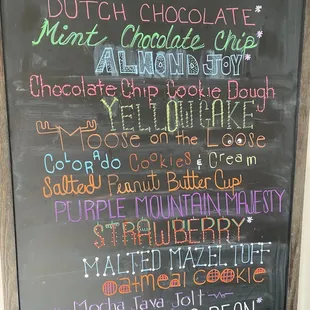 DUTCH CHOCOLATE*
Mint Chocolate Chip*
ALMOND JOY*
Chocolate Chip Cookie Dough
YELLOW CAKE
Moose on the Loose
COLORADO Cookies & Cream
Salted Peanut Butter Cup
PURPLE MOUNTAIN MAJESTY
STRAWBERRY*
MALTED MAZEL TOFF
Oatmeal COOKIE
Mocha Java Jolt
BEAN*